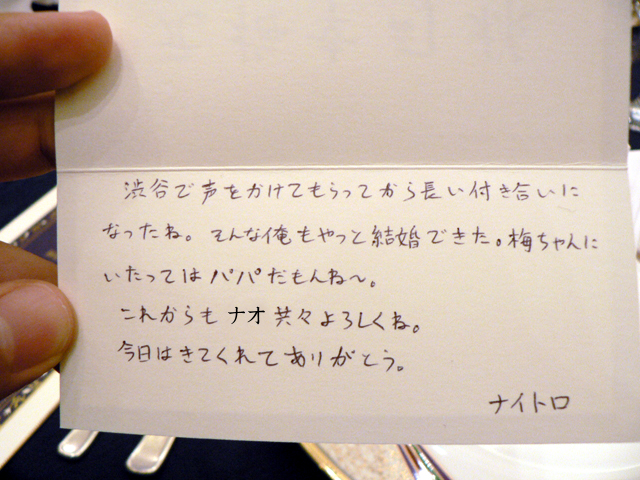 渋谷で声をかけてもらってから長い付き合いに
なったね。そんな俺もやっと結婚できた。梅ちゃんに
いたってはパパだもんね〜。
これからもナオ共々よろしくね。
今日はきてくれてありがとう。
ナイトロ